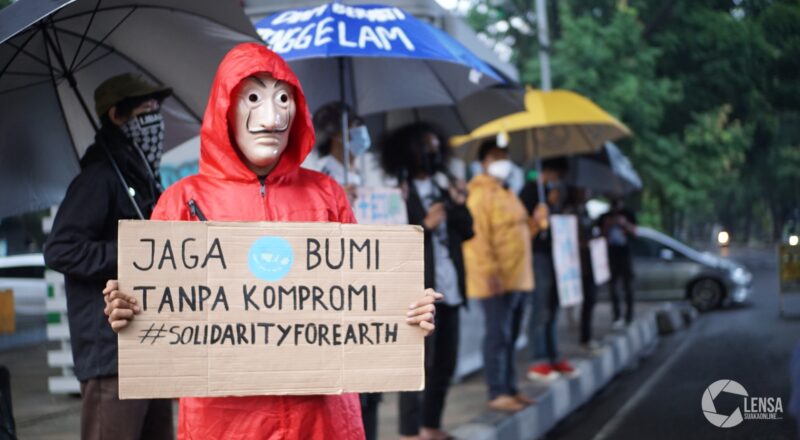 NGGELAM
JAGA BUMI
TANPA KOMPROMI
#SOLIDARITYFOREARTH
LENSA
SUAKAONLINE.COM